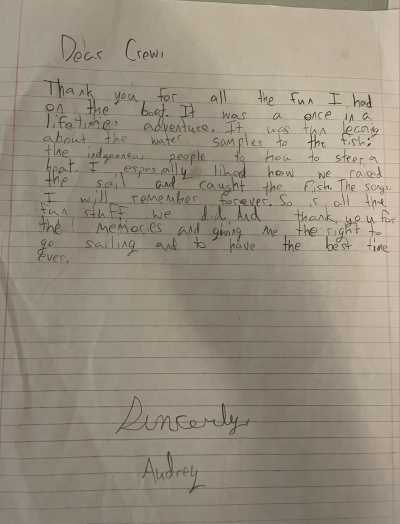 Dear Crew,
Thank you for all the fun I had
on the boat. It was a once in a
lifetimes adventure. It was fun
about the water samples to the fish.
the people to how to steer a
boat. I espesally liked how we rased
the sail and caught the fish. The songs
I will remember forever. So is all the
fun stuff we did. And thank you for
the memories and giving me the right to
go sailing and to have the best time
ever.
Sincerly,
Audrey